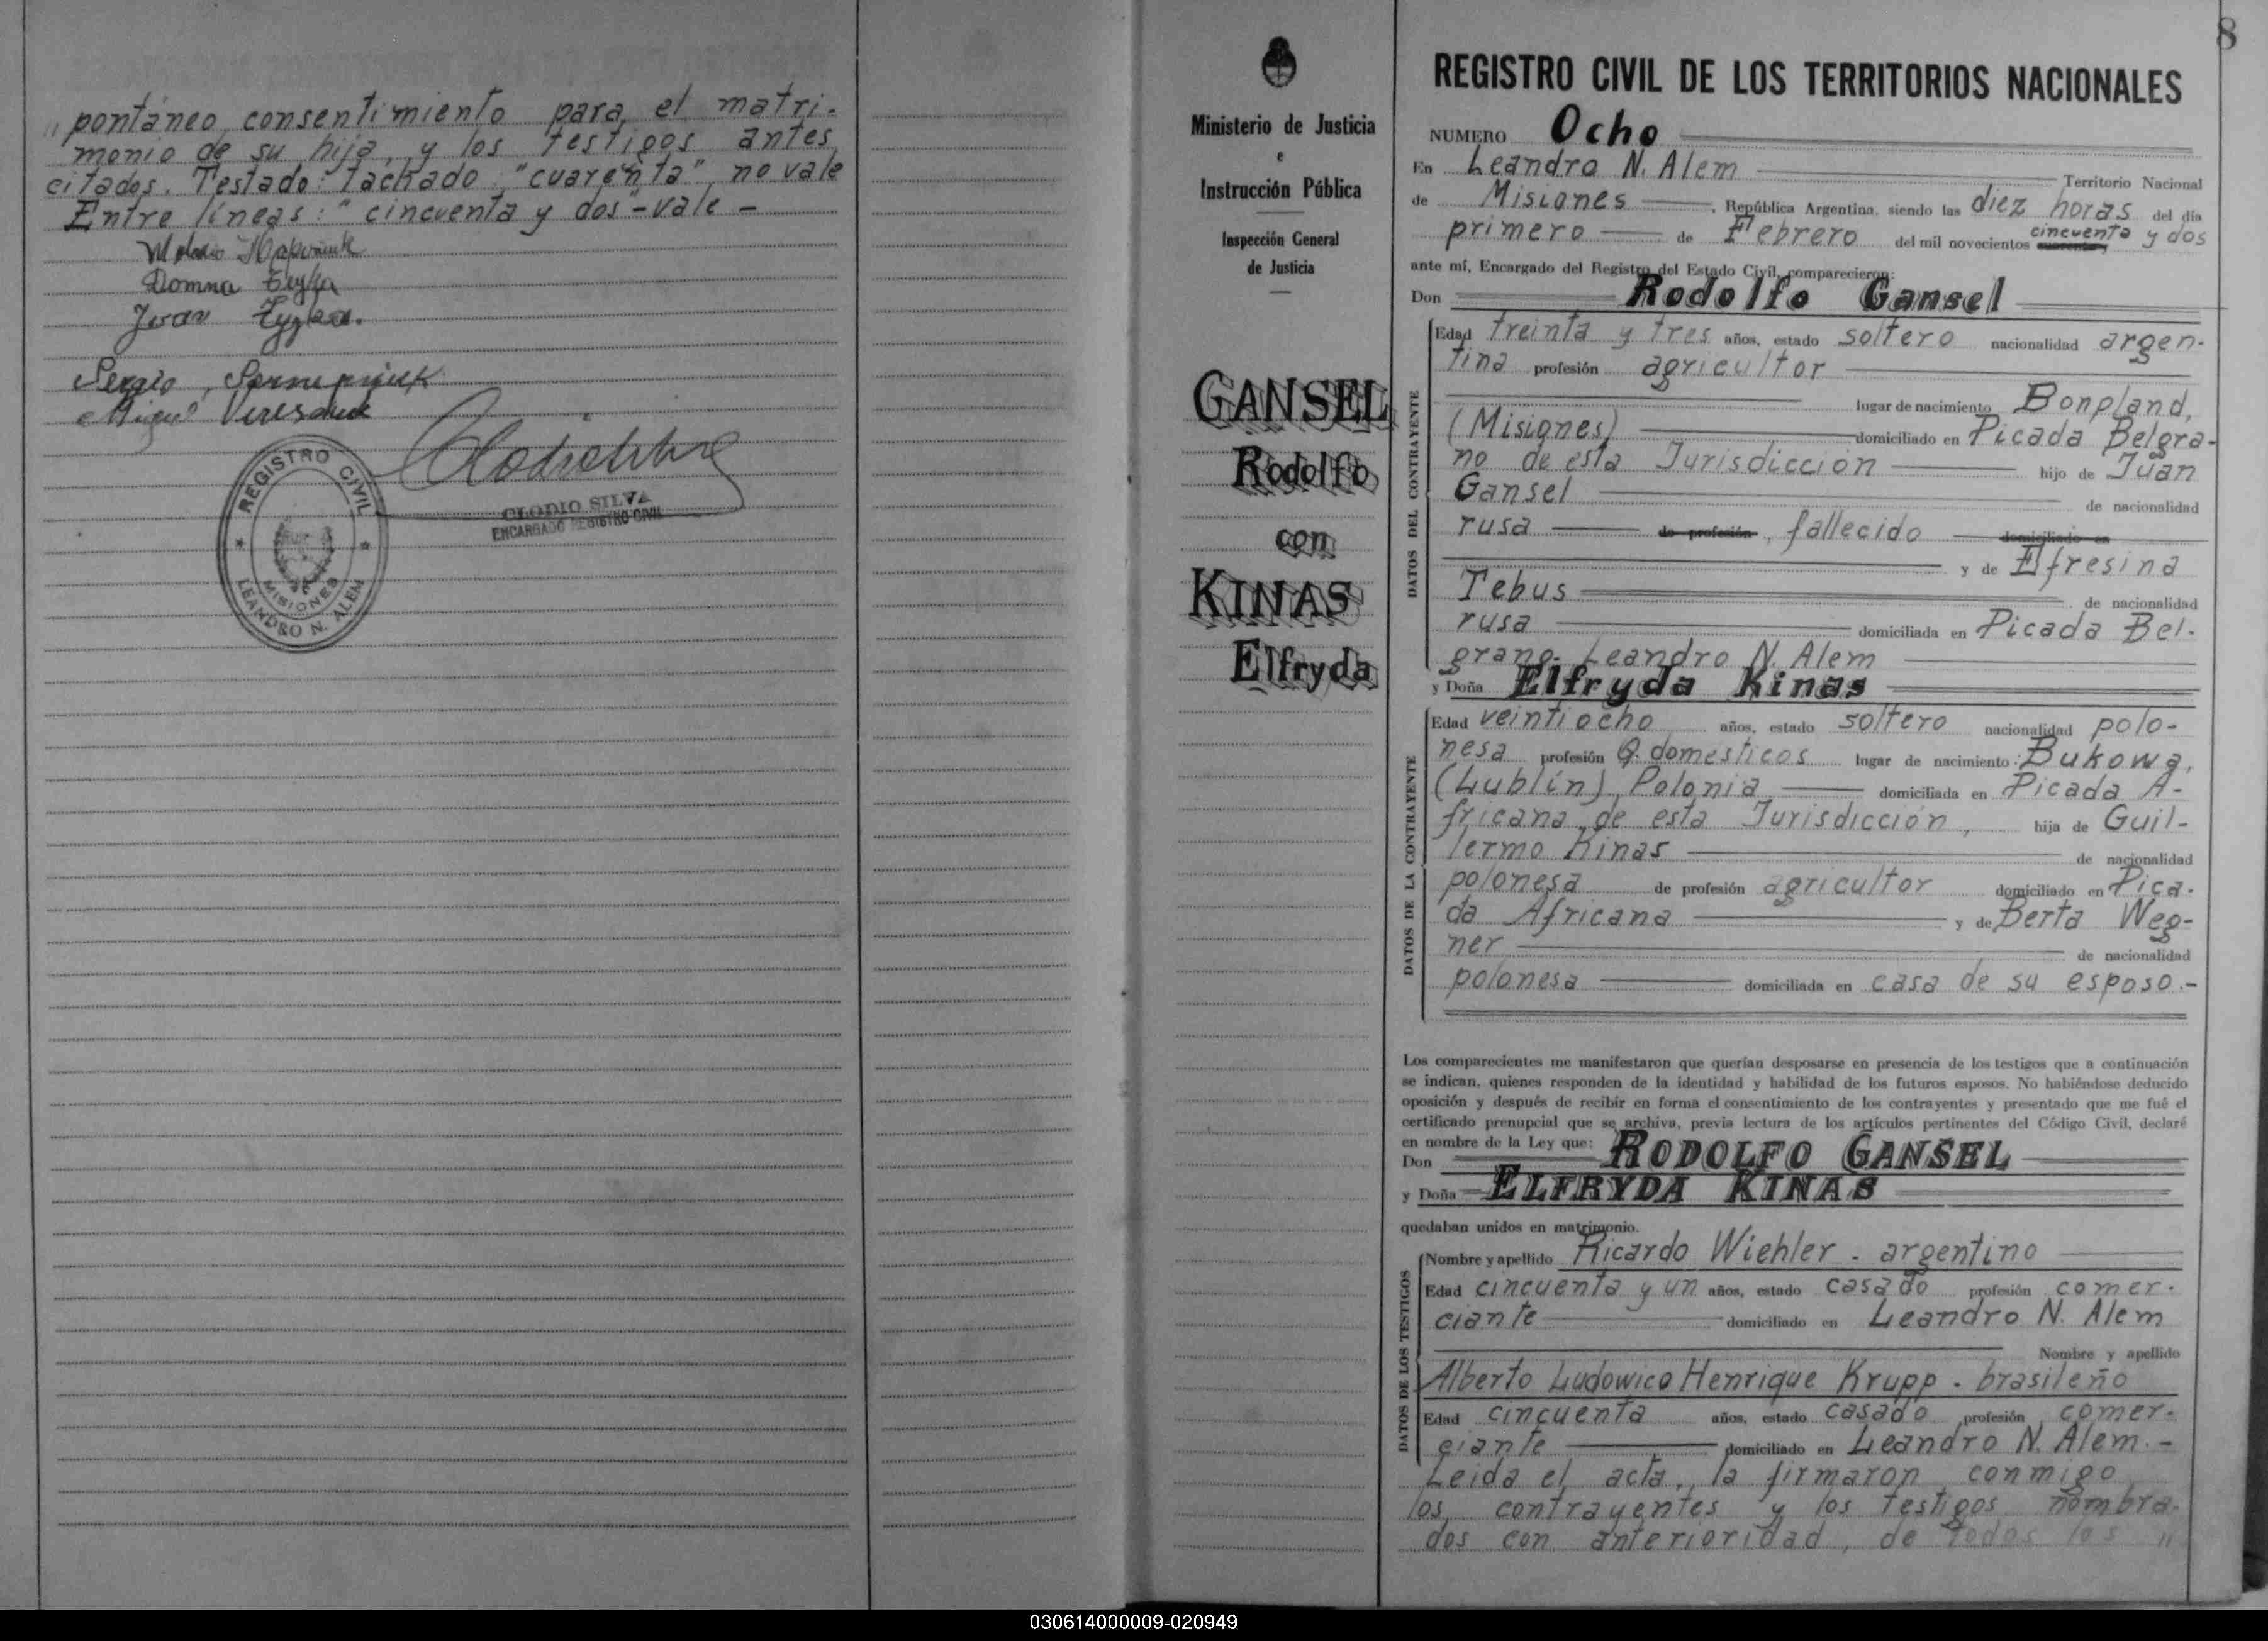 " pontáneo consentimiento para el matri-
monio de su hija, y los testigos antes
citados. Testado: tachado "cuarenta", no vale
Entre líneas: "cincuenta y dos" - vale -
Domna
Juan
Sergio
Miguel
REGISTRO CIVIL
MISIONES
LEANDRO N. ALEM
CLODIO SILVA
ENCARGADO REGISTRO CIVIL
Ministerio de Justicia
e
Instrucción Pública
Inspección General
de Justicia
GANSEL
Rodolfo
con
KINAS
Elfryda
8
REGISTRO CIVIL DE LOS TERRITORIOS NACIONALES
NUMERO Ocho
En Leandro N. Alem Territorio Nacional
de Misiones, República Argentina, siendo las diez horas del día
primero de Febrero del mil novecientos cuarenta, cincuenta y dos
ante mí, Encargado del Registro del Estado Civil, comparecieron:
Don Rodolfo Gansel
DATOS DEL CONTRAYENTE
Edad treinta y tres años, estado soltero nacionalidad argen-
tina profesión agricultor
lugar de nacimiento Bonpland,
(Misiones) domiciliado en Picada Belgra-
no de esta Jurisdicción hijo de Juan
Gansel de nacionalidad
rusa de profesión, fallecido domiciliado en
y de Elfresina
Tebus de nacionalidad
rusa domiciliada en Picada Bel-
grano. Leandro N. Alem
y Doña Elfryda Kinas
DATOS DE LA CONTRAYENTE
Edad veintiocho años, estado soltero nacionalidad polo-
nesa profesión Q. domésticos lugar de nacimiento: Bukowa,
(Lublín), Polonia domiciliada en Picada A-
fricana de esta Jurisdicción, hija de Guil-
lermo Kinas de nacionalidad
polonesa de profesión agricultor domiciliado en Pica-
da Africana y de Berta Weg-
ner de nacionalidad
polonesa domiciliada en casa de su esposo.-
Los comparecientes me manifestaron que querían desposarse en presencia de los testigos que a continuación
se indican, quienes responden de la identidad y habilidad de los futuros esposos. No habiéndose deducido
oposición y después de recibir en forma el consentimiento de los contrayentes y presentado que me fué el
certificado prenupcial que se archiva, previa lectura de los artículos pertinentes del Código Civil, declaré
en nombre de la Ley que:
Don RODOLFO GANSEL
y Doña ELFRYDA KINAS
quedaban unidos en matrimonio.
DATOS DE LOS TESTIGOS
Nombre y apellido Ricardo Wiehler - argentino
Edad cincuenta y un años, estado casado profesión comer-
ciante domiciliado en Leandro N. Alem
Nombre y apellido
Alberto Ludowico Henrique Krupp - brasileño
Edad cincuenta años, estado casado profesión comer-
ciante domiciliado en Leandro N. Alem.-
Leída el acta, la firmaron conmigo
los contrayentes y los testigos nombra-
dos con anterioridad, de todos los "
030614000009-020949